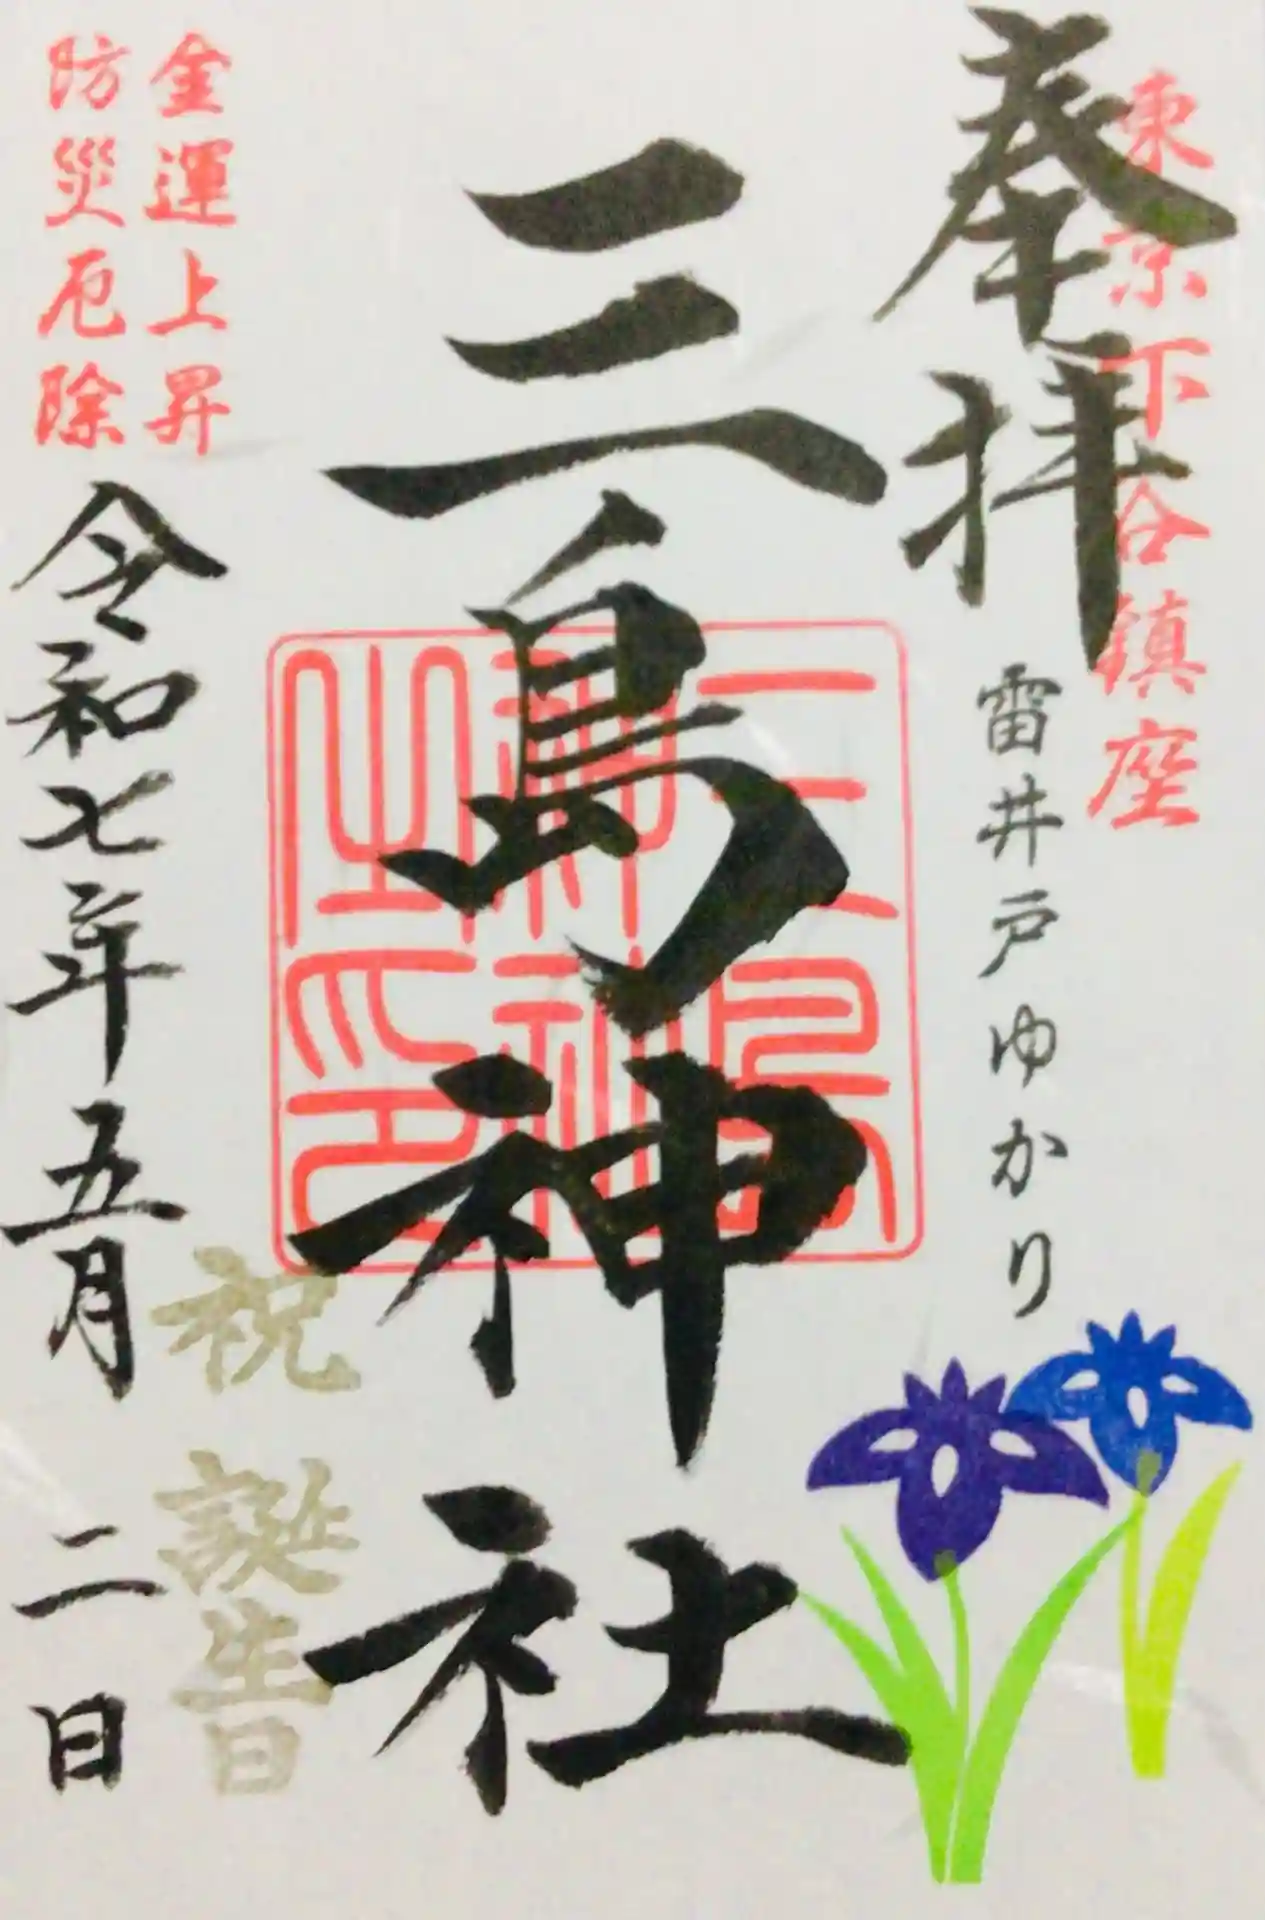 東京下谷鎮座
奉拝
雷井戸ゆかり
三島神社
三島
神社
之印
金運上昇
防災厄除
祝 誕生日
令和七年五月二日